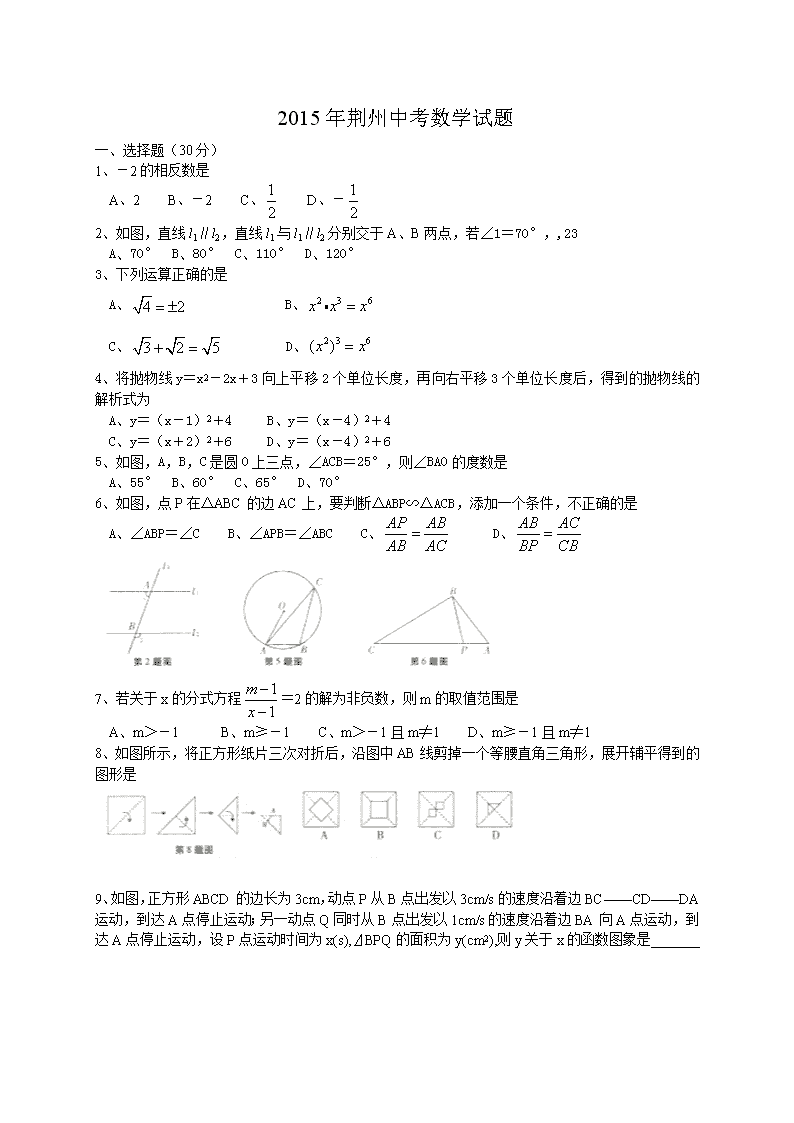 2015年荆州中考数学试题
一、选择题（30分）
1、－2的相反数是
A、2 B、－2 C、1/2 D、－1/2
2、如图，直线l₁∥l₂，直线l₁与l₁∥l₂分别交于A、B两点，若∠1＝70°，,23
A、70° B、80° C、110° D、120°
3、下列运算正确的是
A、√4＝±2 B、x²•x³＝x⁶
C、√3＋√2＝√5 D、(x²)³＝x⁶
4、将抛物线y＝x²－2x＋3向上平移2个单位长度，再向右平移3个单位长度后，得到的抛物线的
解析式为
A、y＝（x－1）²＋4 B、y＝（x－4）²＋4
C、y＝（x＋2）²＋6 D、y＝（x－4）²＋6
5、如图，A，B，C是圆O上三点，∠ACB＝25°，则∠BAO的度数是
A、55° B、60° C、65° D、70°
6、如图，点P在△ABC的边AC上，要判断△ABP∽△ACB，添加一个条件，不正确的是
A、∠ABP＝∠C B、∠APB＝∠ABC C、AP/AB＝AB/AC D、AB/BP＝AC/CB
A l₁ B l₂
第2题图
O C A B
第5题图
B C P A
第6题图
7、若关于x的分式方程(m－1)/(x－1)＝2的解为非负数，则m的取值范围是
A、m＞－1 B、m≥－1 C、m＞－1且m≠1 D、m≥－1且m≠1
8、如图所示，将正方形纸片三次对折后，沿图中AB线剪掉一个等腰直角三角形，展开铺平得到的
图形是
A B C D
第8题图
9、如图，正方形ABCD的边长为3cm，动点P从B点出发以3cm/s的速度沿着边BC——CD——DA
运动，到达A点停止运动；另一动点Q同时从B点出发以1cm/s的速度沿着边BA向A点运动，到
达A点停止运动，设P点运动时间为x(s)，⊿BPQ的面积为y(cm²),则y关于x的函数图象是